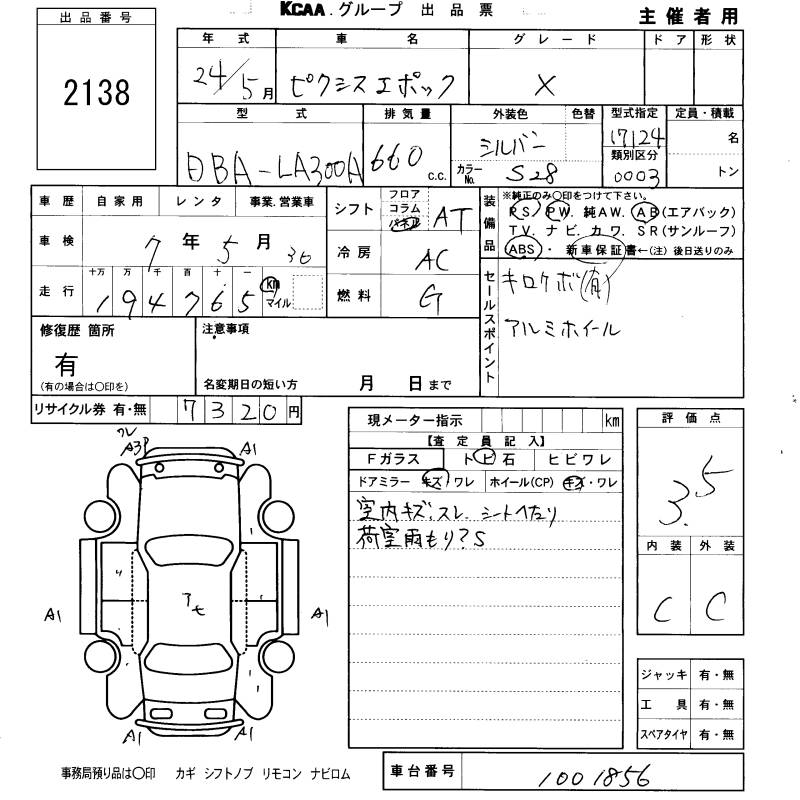 KCAA.グループ 出品票
主催者用
出品番号
2138
年式 車名 グレード ドア 形状
24/5月 ピクシスエポック X
型式 排気量 外装色 色替 型式指定 定員・積載
DBA-LA300A 660 c.c. シルバー 17124 名
カラーNo. S28 類別区分 0003 トン
車歴 自家用 レンタ 事業.営業車
シフト フロア コラム パネル AT
装備品 ※純正のみ○印をつけて下さい。
PS. PW. 純AW. AB(エアバック)
TV. ナビ. カワ. SR(サンルーフ)
ABS・ 新車保証書←(注) 後日送りのみ
車検 7年5月30
冷房 AC
走行 十万 万 千 百 十 一
194765 km マイル
燃料 G
セールスポイント
キロケボ(有)
アルミホイール
修復歴 箇所
有
(有の場合は○印を)
注意事項
名変期日の短い方 月 日まで
リサイクル券 有・無 7320円
現メーター指示 km
【査定員記入】
Fガラス トビ石 ヒビワレ
ドアミラー キズ・ワレ ホイール(CP) キズ・ワレ
室内キズ.スレ.シートヘたり
荷室雨もり?S
評価点
3.5
内装 外装
C C
ワレ
A3P A1
〃
アモ
A1 A1
A1 A1
ジャッキ 有・無
工具 有・無
スペアタイヤ 有・無
事務局預り品は○印 カギ シフトノブ リモコン ナビロム
車台番号 1001856